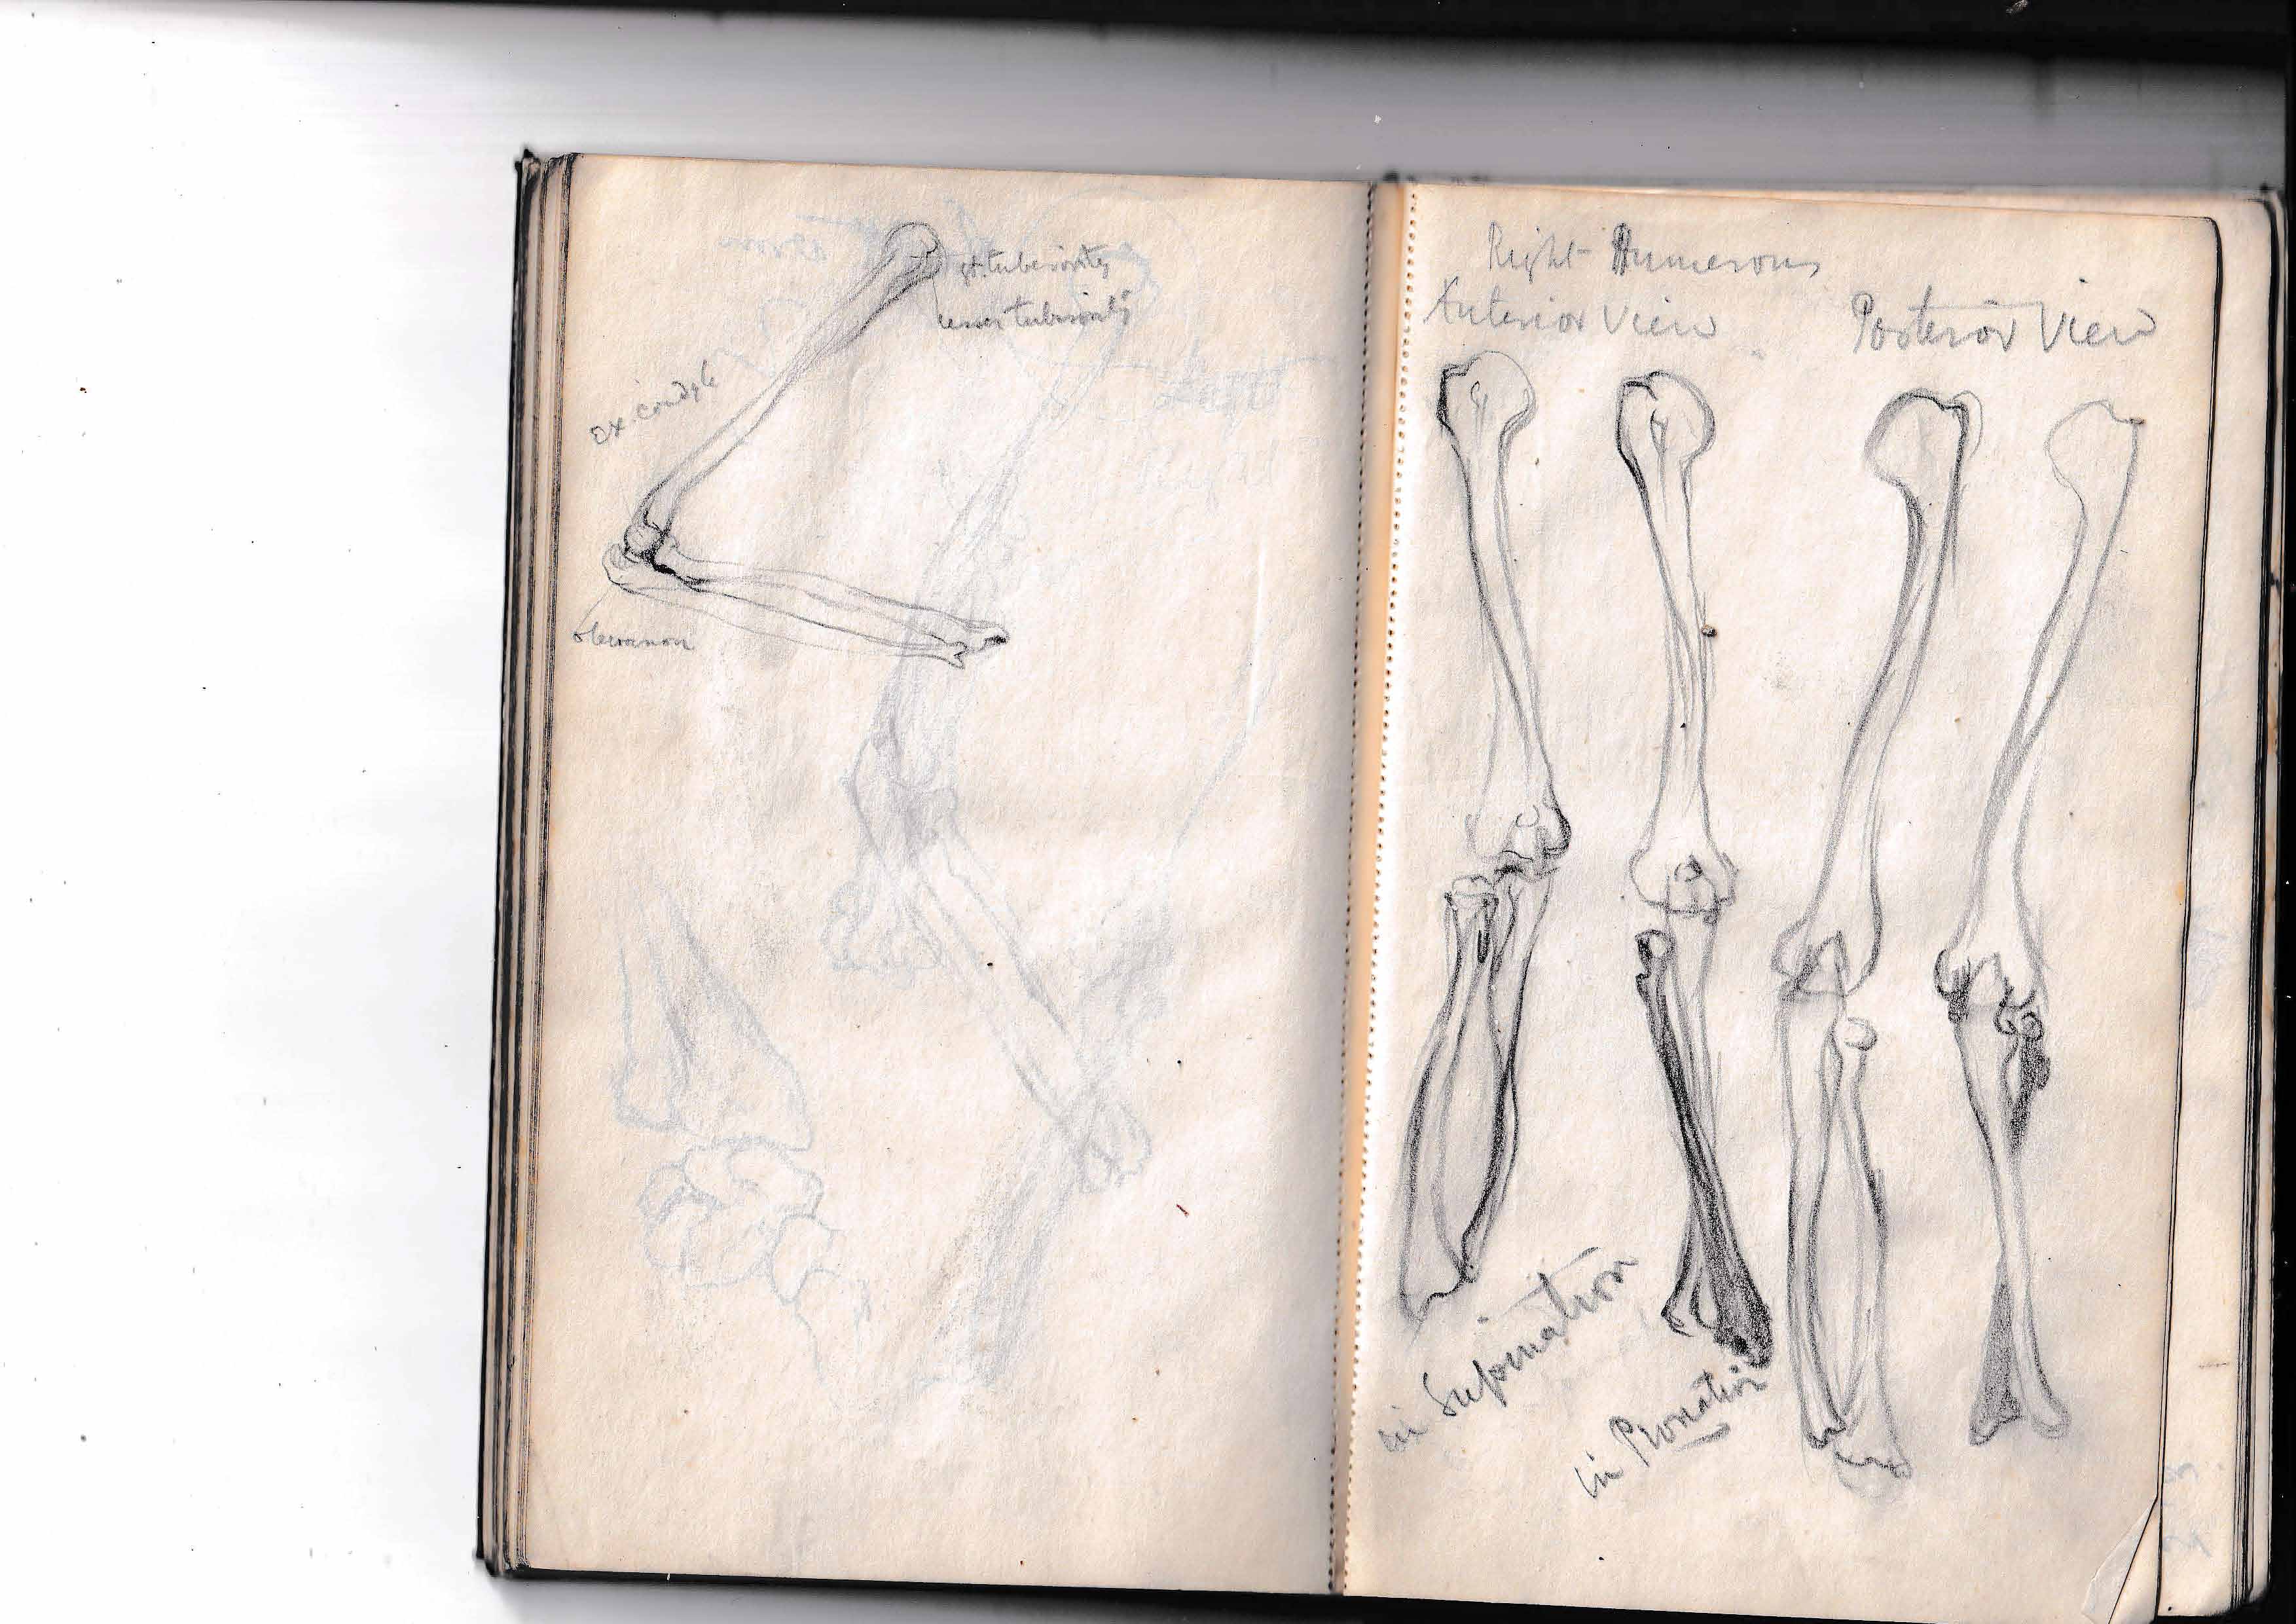 gt. tuberosity
lesser tuberosity
ex. condyle
Olecranon
Right Humerous
Anterior View
Posterior View
in Supination
in Pronation